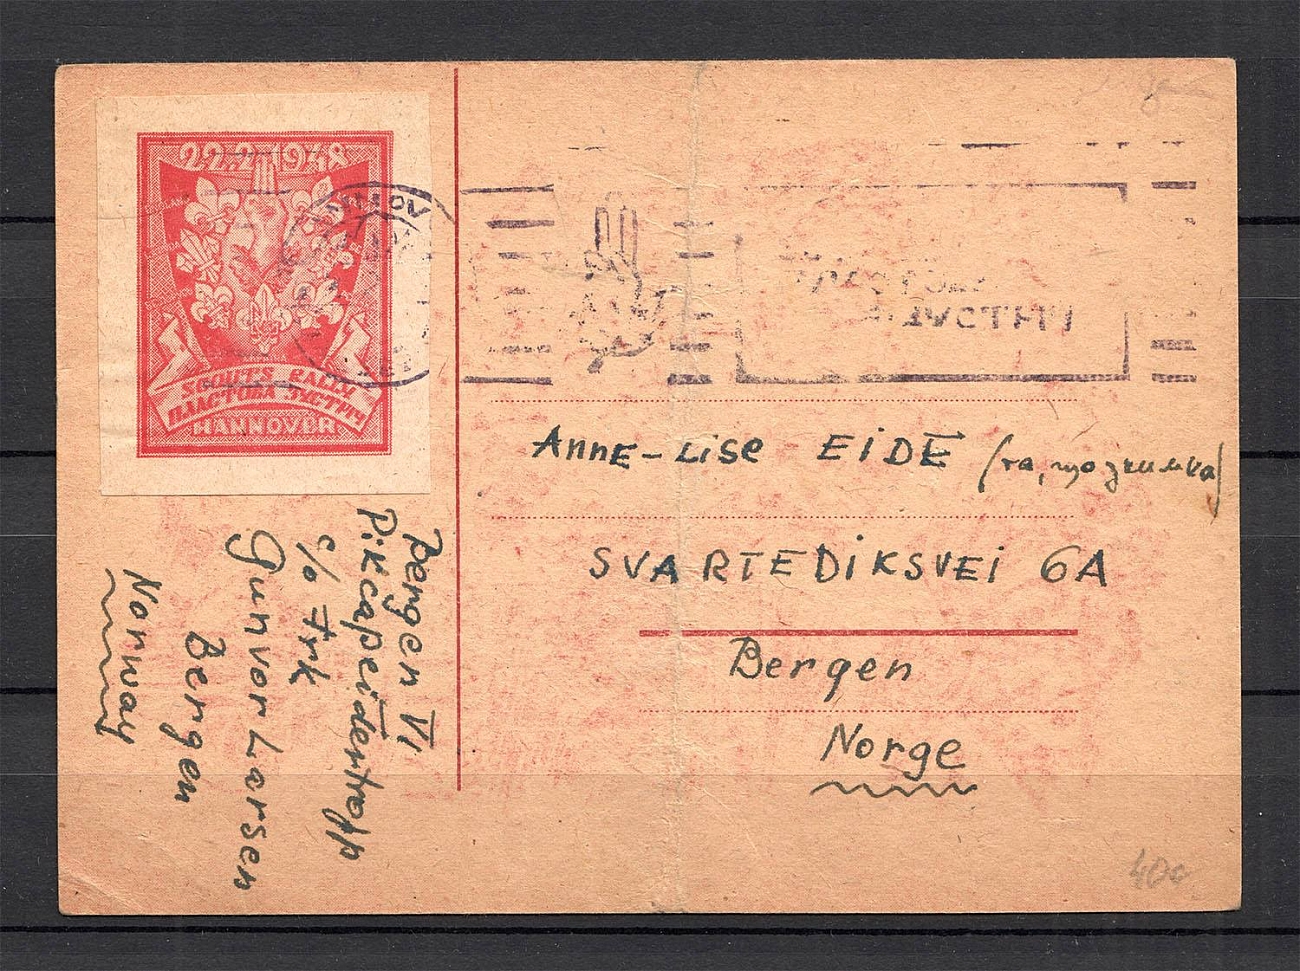 22.2.1948
SCOUTS RALLY
ПЛАСТОВА ЗУСТРІЧ
HANNOVER
ЗУСТРІЧ
Anne-Lise EIDE (та, що
SVARTEDIKSVEI 6A
Bergen
Norge
Bergen VI
Pikespeidertropp
c/o Frk
Gunvor Larsen
Bergen
Norway
400